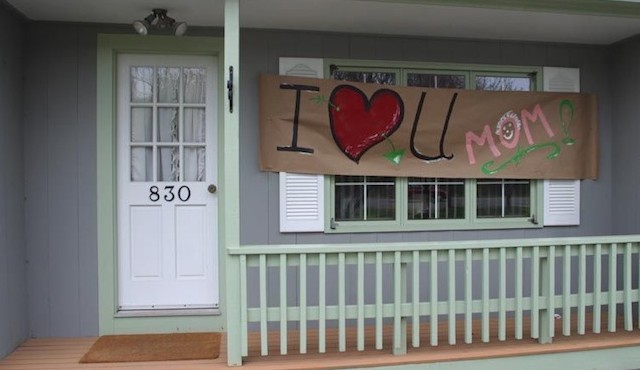 830
I ❤ U MOM!